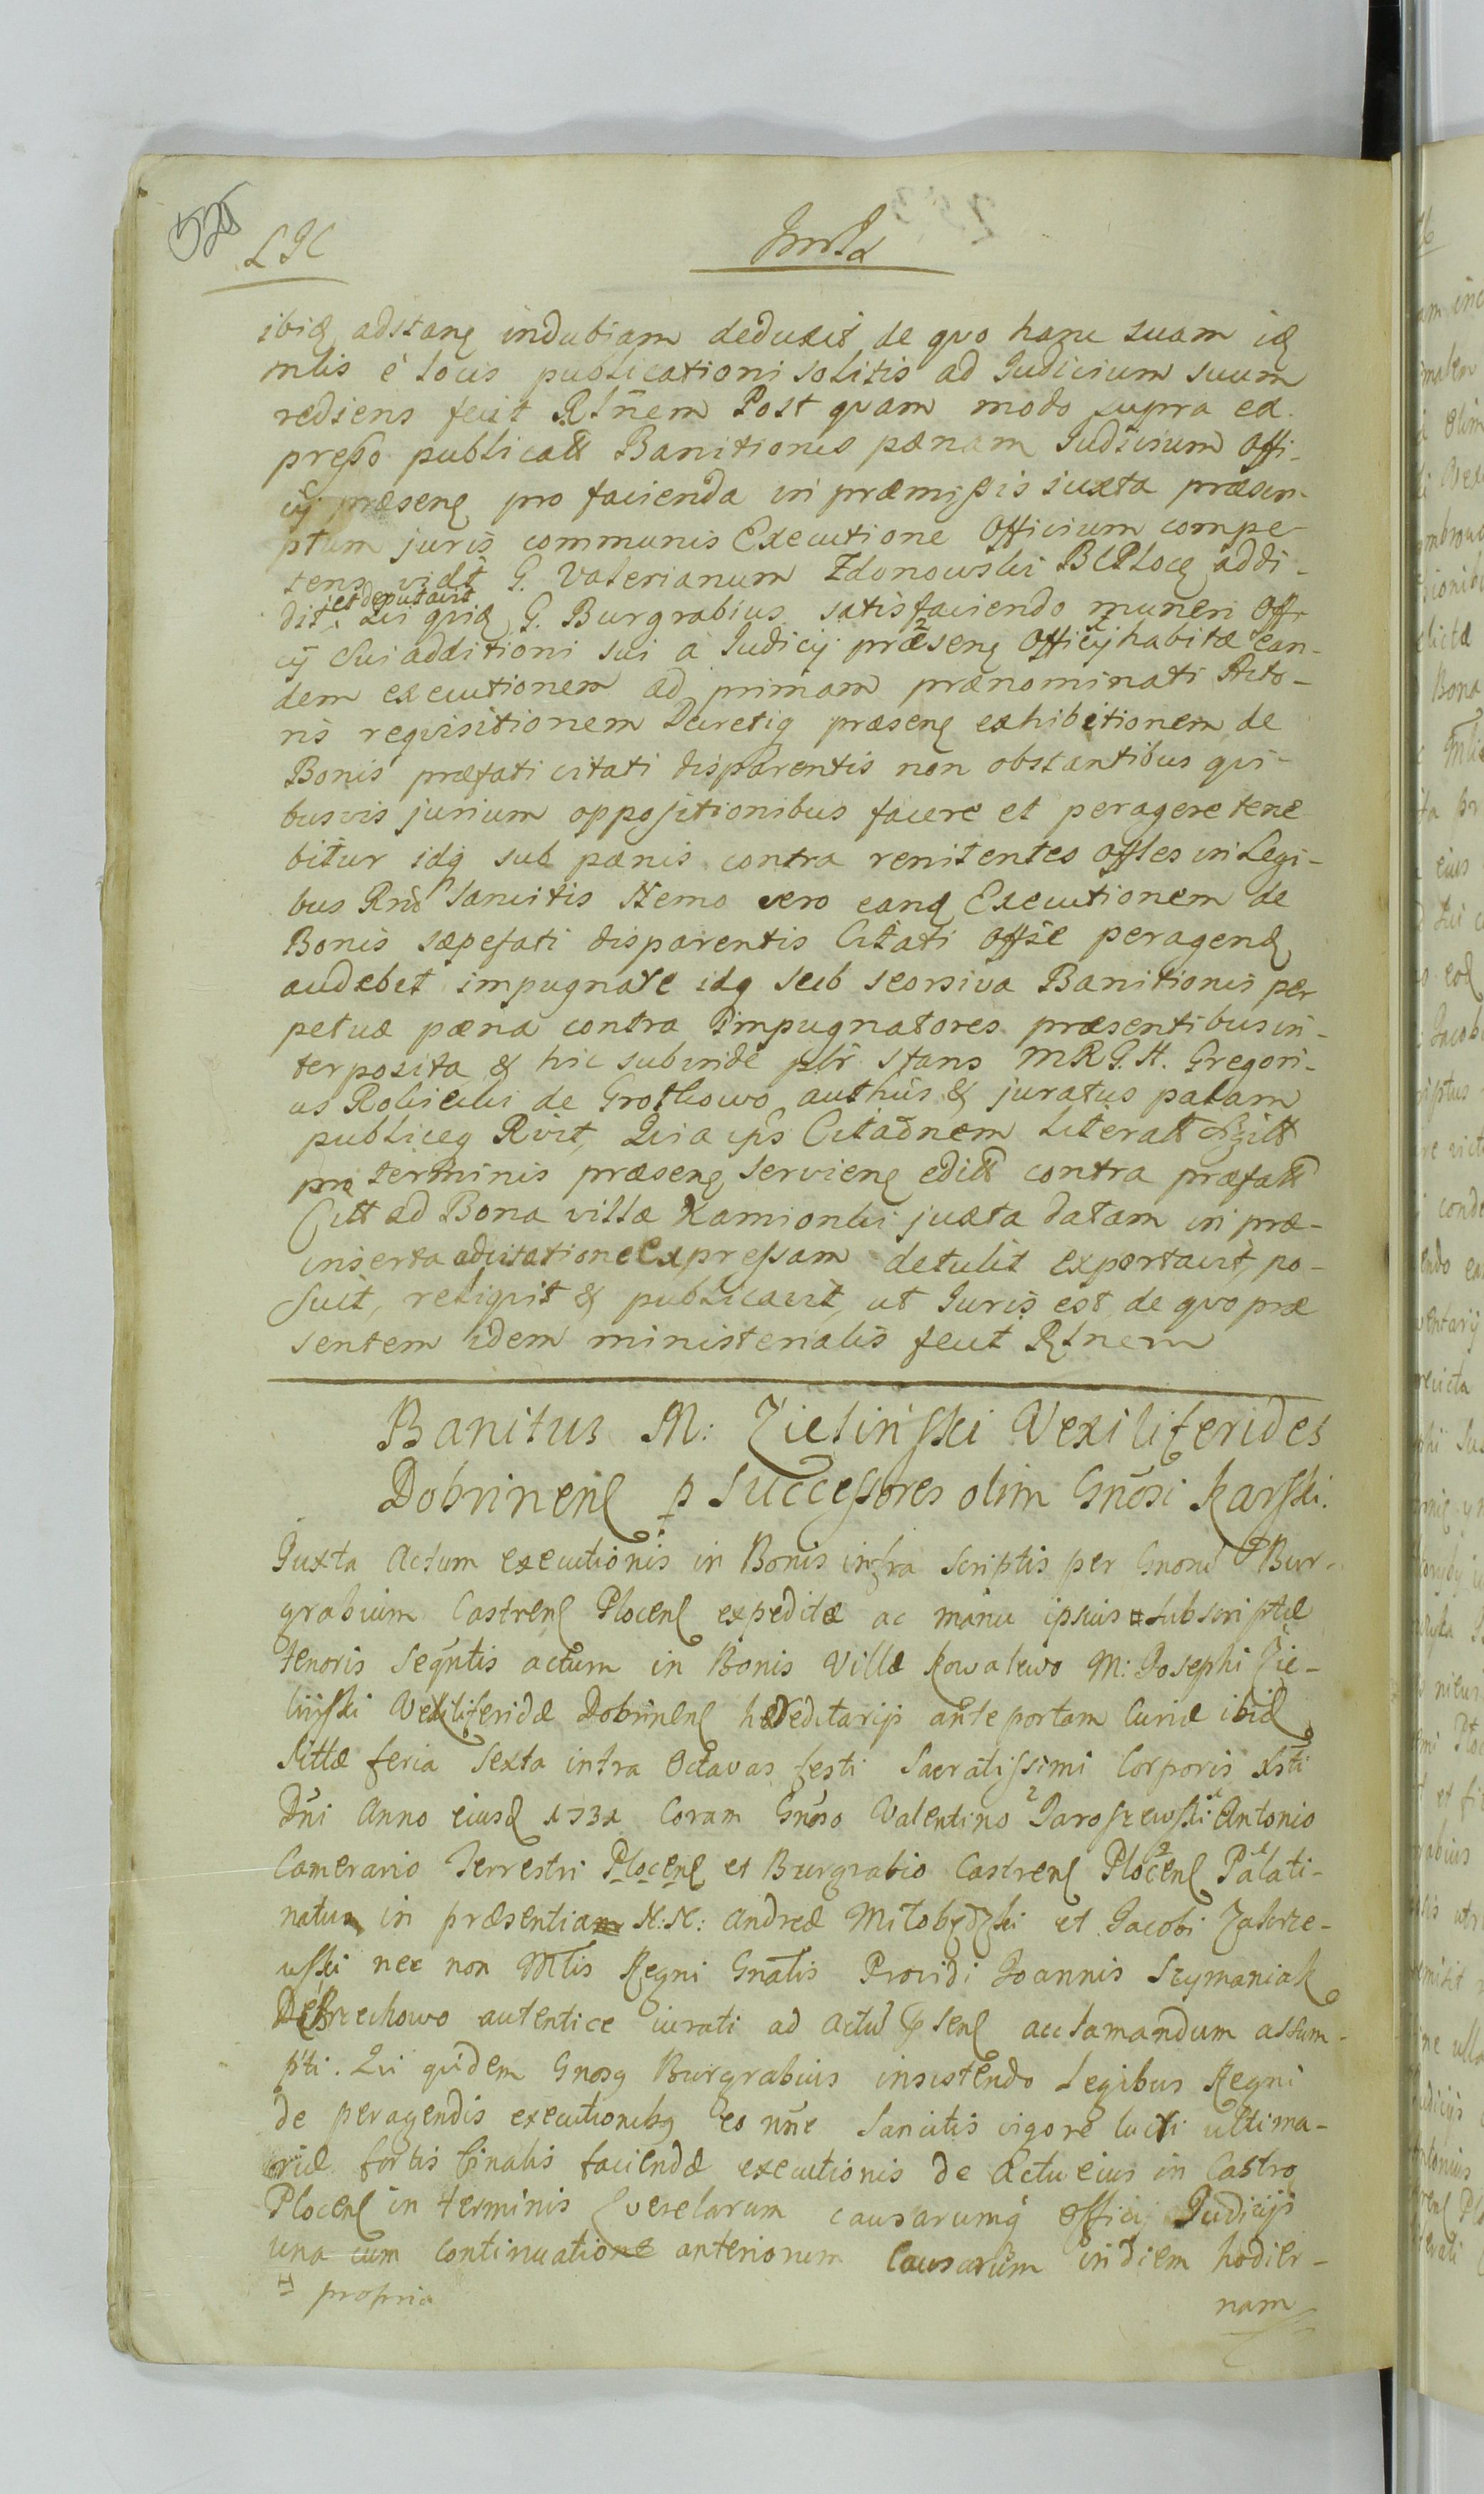 526
ibid adstanq indubiam deduxit de quo hanc suam id
mlis è locis publicationi solitis ad Judicium suum
rediens fecit Rlnem Post quam modo supra ex
presso publicatt Banitionis pænam Judicium offi-
cij præsenq pro facienda in præmissis iuxta præscri-
ptum juris communis Executione Officium compe-
tens vidt G. Valerianum Zdonowski BCPlocq addi-
et deputavit
dit. Qui quid G. Burgrabius satisfaciendo muneri offi
cij sui additioni sui a Judicij præsenq Officij habitæ ean-
dem executionem ad primam prænominati Acto-
ris requisitionem Decretiq præsenq exhibitionem de
Bonis præfati citati disparentis non obstantibus qui-
busvis jurium oppositionibus facere et peragere tene
bitur idq sub pænis contra renitentes offles in Legi-
bus Rni sancitis Nemo vero eand Executionem de
Bonis sæpefati disparentis Citati offsè peragend
audebit impugnare idq sub seorsiva Banitionis per
petuæ pæna contra impugnatores præsentibus in-
terposita & hic subinde pltr stans MRG.H. Gregori-
us Robicki de Grotkowo authûs & juratus palam
publiceq Rvit, Quia ips Citaõnem literatt Sgitt
pro terminis præsenq servienq editt contra præfatt
Citt ad Bona villæ Kamionki juxta datam in præ-
inserta adcitatione expressam detulit exportavit, po-
suit, reliqvit & publicavit, ut Juris est de qvo præ
sentem idem ministerialis fecit Rlnem
Banitus M: Zieliński Vexiliferides
Dobrinenq p Successores olim Gnosi Karski.
Juxta Actum executionis in Bonis infra scriptis per Gnosu Bur-
grabium Castrenq Plocenq expeditæ ac manu ipsius # subscriptæ
tenoris seqntis actum in Bonis Villæ Kowalewo M: Josephi Zie-
liński Vexiliferidæ Dobrinenq hæreditarijs ante portam Curiæ ibid
sittæ feria sexta intra Octavas festi Sacratissimi Corporis Xsti
Dni Anno eiusd 1731 Coram Gnoso Valentino 2 Jaroszewski 1 Antonio
Camerario Terrestri Plocenq et Burgrabio Castrenq Plocenq 2 Palati- 1
natus in præsentiam N:N: Andreæ Milobędzki et Jacobi Zakrze-
wski nec non Mlis Regni Gnalis Providi Joannis Szymaniak
De Brzechowo autentice iurati ad actu psenq acclamandum assum-
pti. Qui quidem Gnosq Burgrabius insistendo Legibus Regni
de peragendis executionibq eo nne Sancitis vigore lucri ultima-
riæ fortis finalis faciendæ executionis de Actu eius in Castro
Plocenq in terminis Qverelarum causarumq officij Judicijs
una cum continuatione anteriorum Causarum in diem hodier-
# propria
nam